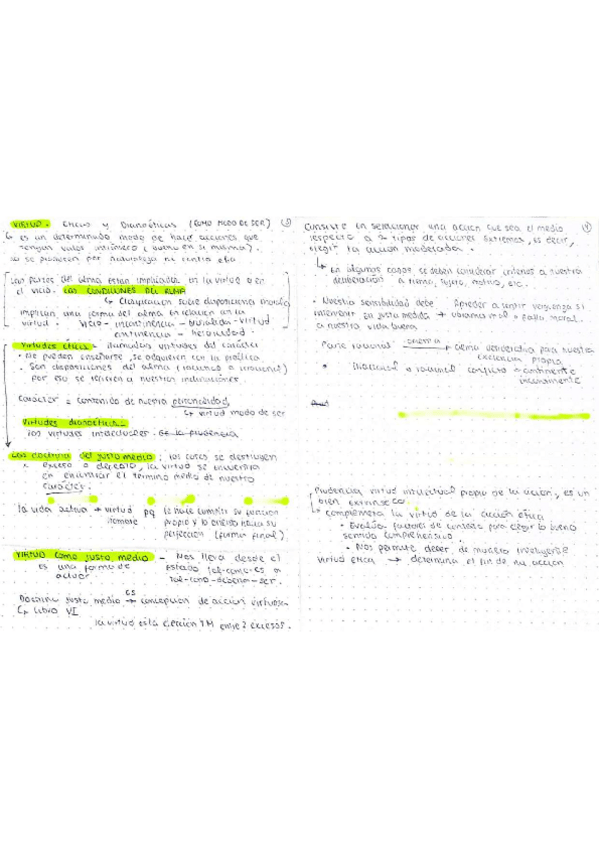 VIRTUD. Éticas y Dianoéticas (como modo de ser) (3)
↳ es un determinado modo de hacer acciones que
tengan valor intrínseco (bueno en sí mismo).
no se producen por naturaleza ni contra ella
Las partes del alma están implicadas en la virtud o en
el vicio. LAS CONDICIONES DEL ALMA
↳ Clasificación sobre disposiciones morales
implican una forma del alma en relación con la
virtud. Vicio - incontinencia - - virtud
continencia - heroicidad.
Virtudes ética = llamadas virtudes del carácter
• No pueden enseñarse, se adquieren con la práctica
. Son disposiciones del alma (racional o irracional)
por eso se refieren a nuestras inclinaciones.
Carácter = contenido de nuestra personalidad,
↳ virtud modo de ser
Virtudes dianoéticas.
las virtudes intelectuales. es la prudencia
Las doctrina del justo medio: las cosas se destruyen
x exceso o defecto, la virtud se encuentra
en encontrar el término medio de nuestro
carácter.
la vida activa → virtud pq le hace cumplir su función
hombre propia y lo eneida hacia su
perfección (forma final)
VIRTUD como justo medio - Nos lleva desde el
es una forma de estado tal-como-es a
actuar. tal-como-debería-ser.
Doctrina justo medio es → concepción de acción virtuosa
↳ Libro VI
la virtud está ejercién TM entre 2 excesos.
Consiste en seleccionar una acción que sea el medio (4)
respecto a 2 tipos de acciones extremas, es decir,
elegir la acción moderada.
↳ En algunos casos se deben considerar criterios a nuestra
deliberación → tiempo, sujeto, motivo, etc.
• Nuestra sensibilidad debe Aprender a sentir vergüenza si
intervenir en justa medida → obramos mal = falta moral.
a nuestra vida buena
Parte racional → como verdadera para nuestra
excelencia propia
• Irracional a racional conflicto → continente
incontinente
Prudencia virtud intelectual propia de la acción, es un
bien extrínseco
↳ complementa la virtud de la acción ética
• Evalúa factores de contexto para elegir lo bueno
sentido comprehensivo
• Nos permite deber de manera inteligente
virtud ética → determina el fin de una acción